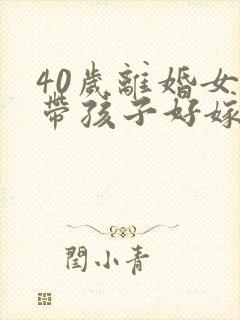 40歲離婚女
帶孩子好嫁
閆小青